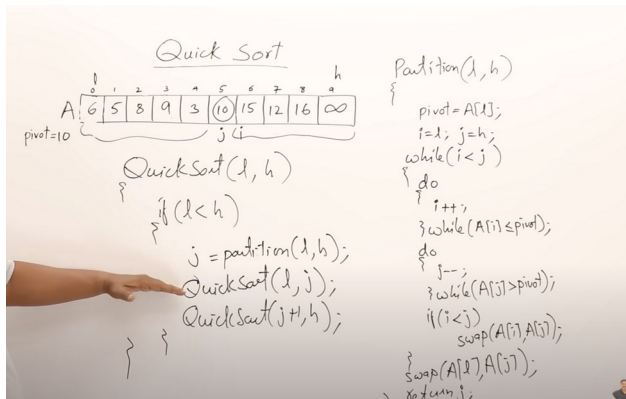 Quick Sort
l h
0 1 2 3 4 5 6 7 8 9
A 6 5 8 9 3 10 15 12 16 ∞
pivot=10 j i
QuickSort(l, h)
{
if(l<h)
{
j = partition(l, h);
QuickSort(l, j);
QuickSort(j+1, h);
}
}
Partition(l, h)
{
pivot=A[l];
i=l; j=h;
while(i<j)
{ do
{
i++;
}while(A[i]≤pivot);
do
{ j--;
}while(A[j]>pivot);
if(i<j)
swap(A[i],A[j]);
}
swap(A[l],A[j]);
return j;